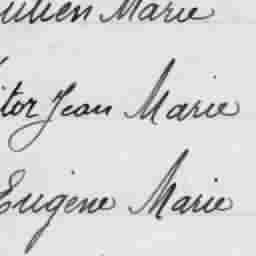 ulien Marie
itor Jean Marie
Eugène Marie